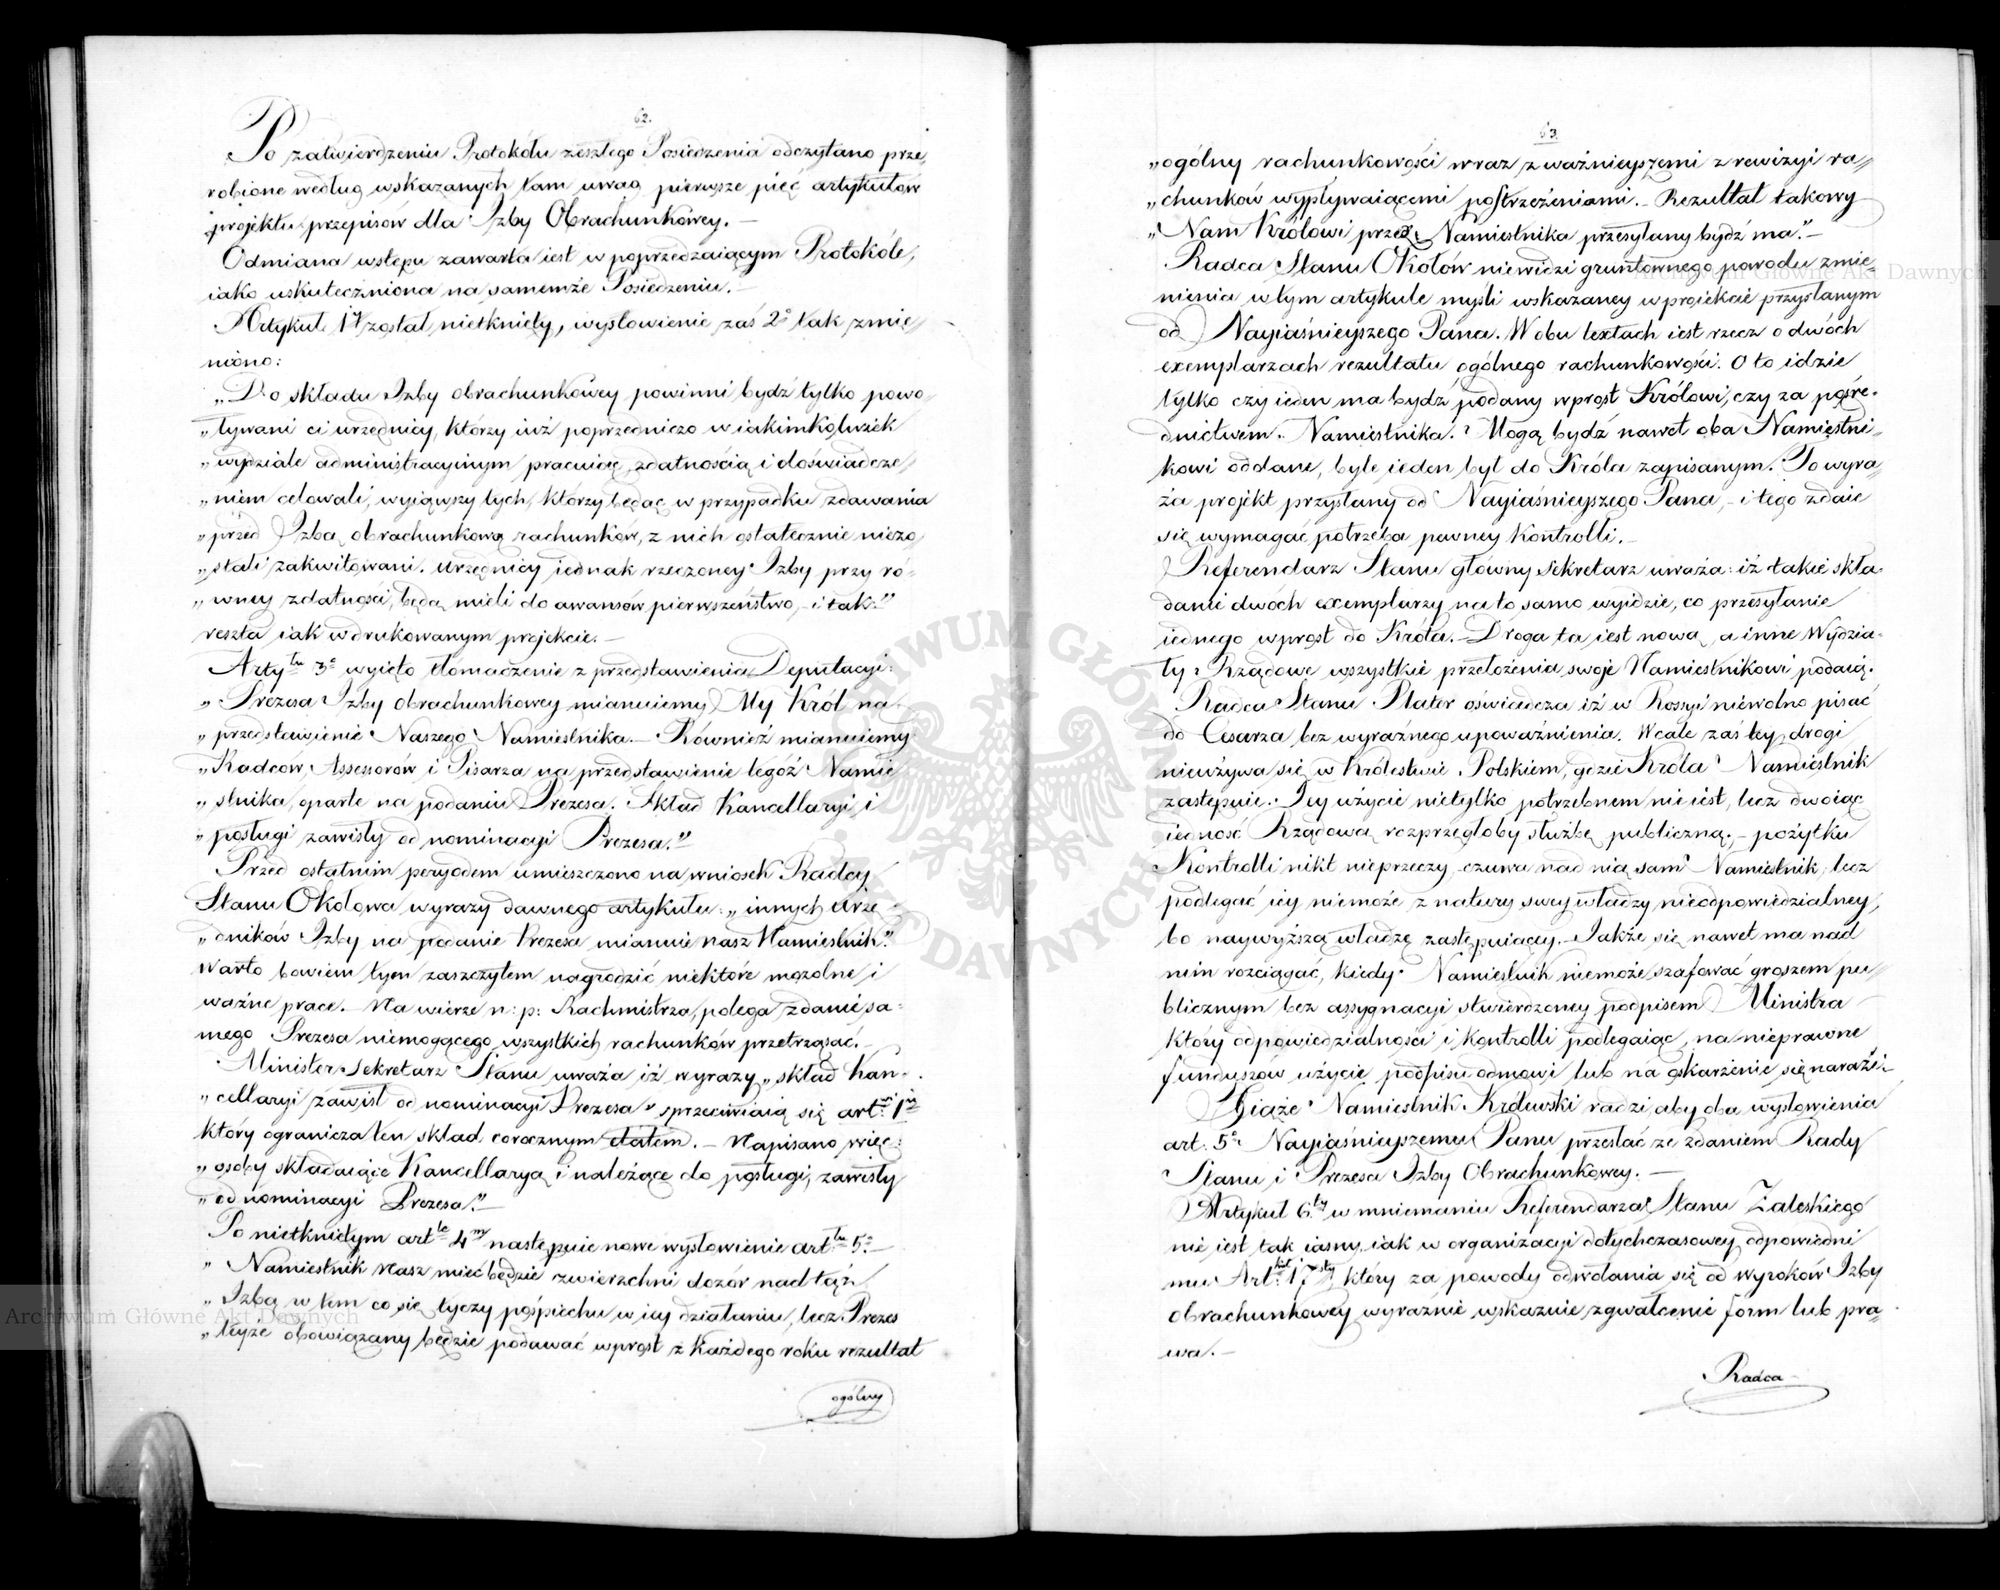 62.
Po zatwierdzeniu Protokółu zeszłego Posiedzenia odczytano prze-
robione według wskazanych tam uwag pierwsze pięć artykułów
projektu przepisów dla Izby Obrachunkowey. —
Odmiana wstępu zawarta iest w poprzedzaiącym Protokóle,
iako uskuteczniona na samemże Posiedzeniu. —
Artykuł 1y został nietknięty, wysłowienie zaś 2o tak zmie-
niono:
„Do składu Izby obrachunkowey powinni bydź tylko powo-
„ływani ci urzędnicy, którzy iuż poprzedniczo w iakimkolwiek
„wydziale administracyinym pracuiąc, zdatnością i doświadcze-
„niem celowali, wyiąwszy tych, którzy będąc w przypadku zdawania
„przed Izbą obrachunkową rachunków, z nich ostatecznie niezo-
„stali zakwitowani. Urzędnicy iednak rzeczoney Izby przy ró-
„wney zdatności, będą mieli do awansów pierwszeństwo, - i tak."
reszta iak w drukowanym projekcie. —
Artłu 3o wyięto tłomaczenie z przedstawienia Deputacyi:
„Prezesa Izby obrachunkowey mianuiemy My Król na
„przedstawienie Naszego Namiestnika. — Również mianuiemy
„Radców, Assessorów i Pisarza na przedstawienie tegóż Namie-
„stnika, oparte na podaniu Prezesa. Skład Kancellaryi i
„posługi zawisły od nominacyi Prezesa."
Przed ostatnim peryodem umieszczono na wniosek Radcy
Stanu Okołowa wyrazy dawnego artykułu: „innych urzę-
„dników Izby na podanie Prezesa mianuie nasz Namiestnik."
Warto bowiem tym zaszczytem nagrodzić niektóre mozolne i
ważne prace. — Na wierze n: p: Rachmistrza, polega zdanie sa-
mego Prezesa niemogącego wszystkich rachunków przetrząsać. —
Minister Sekretarz Stanu uważa iż wyrazy „skład Kan-
„cellaryi zawisł od nominacyi Prezesa" sprzeciwiaią się artwi 1mu
który ogranicza ten skład corocznym etatem. — Napisano więc:
„osoby składaiące Kancellaryą i należące do posługi, zawisły
„od nominacyi Prezesa." —
Po nietkniętym artle 4m następuie nowe wysłowienie artłu 5o —
„Namiestnik Nasz mieć będzie zwierzchni dozór nad tąż
„Izbą w tem co się tyczy pośpiechu w iey działaniu, lecz Prezes
„teyże obowiązany będzie podawać wprost z każdego roku rezultat
ogólny
63.
„ogólny rachunkowości wraz z ważnieyszemi z rewizyi ra-
„chunków wypływaiącemi postrzeżeniami. - Rezultat takowy
„Nam Królowi przez Namiestnika przesyłany bydź ma." —
Radca Stanu Okołów niewidzi gruntownego powodu zmie-
nienia w tym artykule myśli wskazaney w projekcie przysłanym
od Nayiaśnieyszego Pana. W obu textach iest rzecz o dwóch
exemplarzach rezultatu ogólnego rachunkowości. O to idzie
tylko czy ieden ma bydź podany wprost Królowi, czy za pośre-
dnictwem Namiestnika. Mogą bydź nawet oba Namiestni-
kowi oddane, byle ieden był do Króla zapisanym. To wyra-
ża projekt przysłany od Nayiaśnieyszego Pana, - i tego zdaie
się wymagać potrzeba pewney Kontrolli. —
Referendarz Stanu główny Sekretarz uważa: iż takie skła-
danie dwóch exemplarzy na to samo wyidzie, co przesyłanie
iednego wprost do Króla. — Droga ta iest nowa, a inne Wydzia-
ły Rządowe wszystkie przełożenia swoje Namiestnikowi podaią.
Radca Stanu Plater oświadcza iż w Rossyi niewolno pisać
do Cesarza bez wyraźnego upoważnienia. Wcale zaś tey drogi
nieużywa się w Królestwie Polskiem, gdzie Króla Namiestnik
zastępuie. Jey użycie nietylko potrzebnem nie iest, lecz dwoiąc
iedność Rządową rozprzęgłoby służbę publiczną; - pożytku
Kontrolli nikt nieprzeczy, czuwa nad nią sam Namiestnik, lecz
podlegać iey niemoże z natury swey władzy nieodpowiedzialney,
bo naywyższą władzę zastępuiącey. Jakże się nawet ma nad
nim rozciągać, kiedy Namiestnik niemoże szafować groszem pu-
blicznym bez assygnacyi stwierdzoney podpisem Ministra
który odpowiedzialności i Kontrolli podlegaiąc, na nieprawne
funduszów użycie podpisu odmówi lub na oskarżenie się narazi. —
Xiąże Namiestnik Królewski radzi aby oba wysłowienia
art. 5o Nayiaśnieyszemu Panu przesłać ze zdaniem Rady
Stanu i Prezesa Izby Obrachunkowey. —
Artykuł 6ty w mniemaniu Referendarza Stanu Zaleskiego
nie iest tak iasny iak w organizacyi dotychczasowey odpowiedni
mu Artkuł 17sty który za powody odwołania się od wyroków Izby
obrachunkowey wyraźnie wskazuie zgwałcenie form lub pra-
wa. —
Radca
ARCHIWUM GŁÓWNE AKT DAWNYCH
Archiwum Główne Akt Dawnych
Archiwum Główne Akt Dawnych